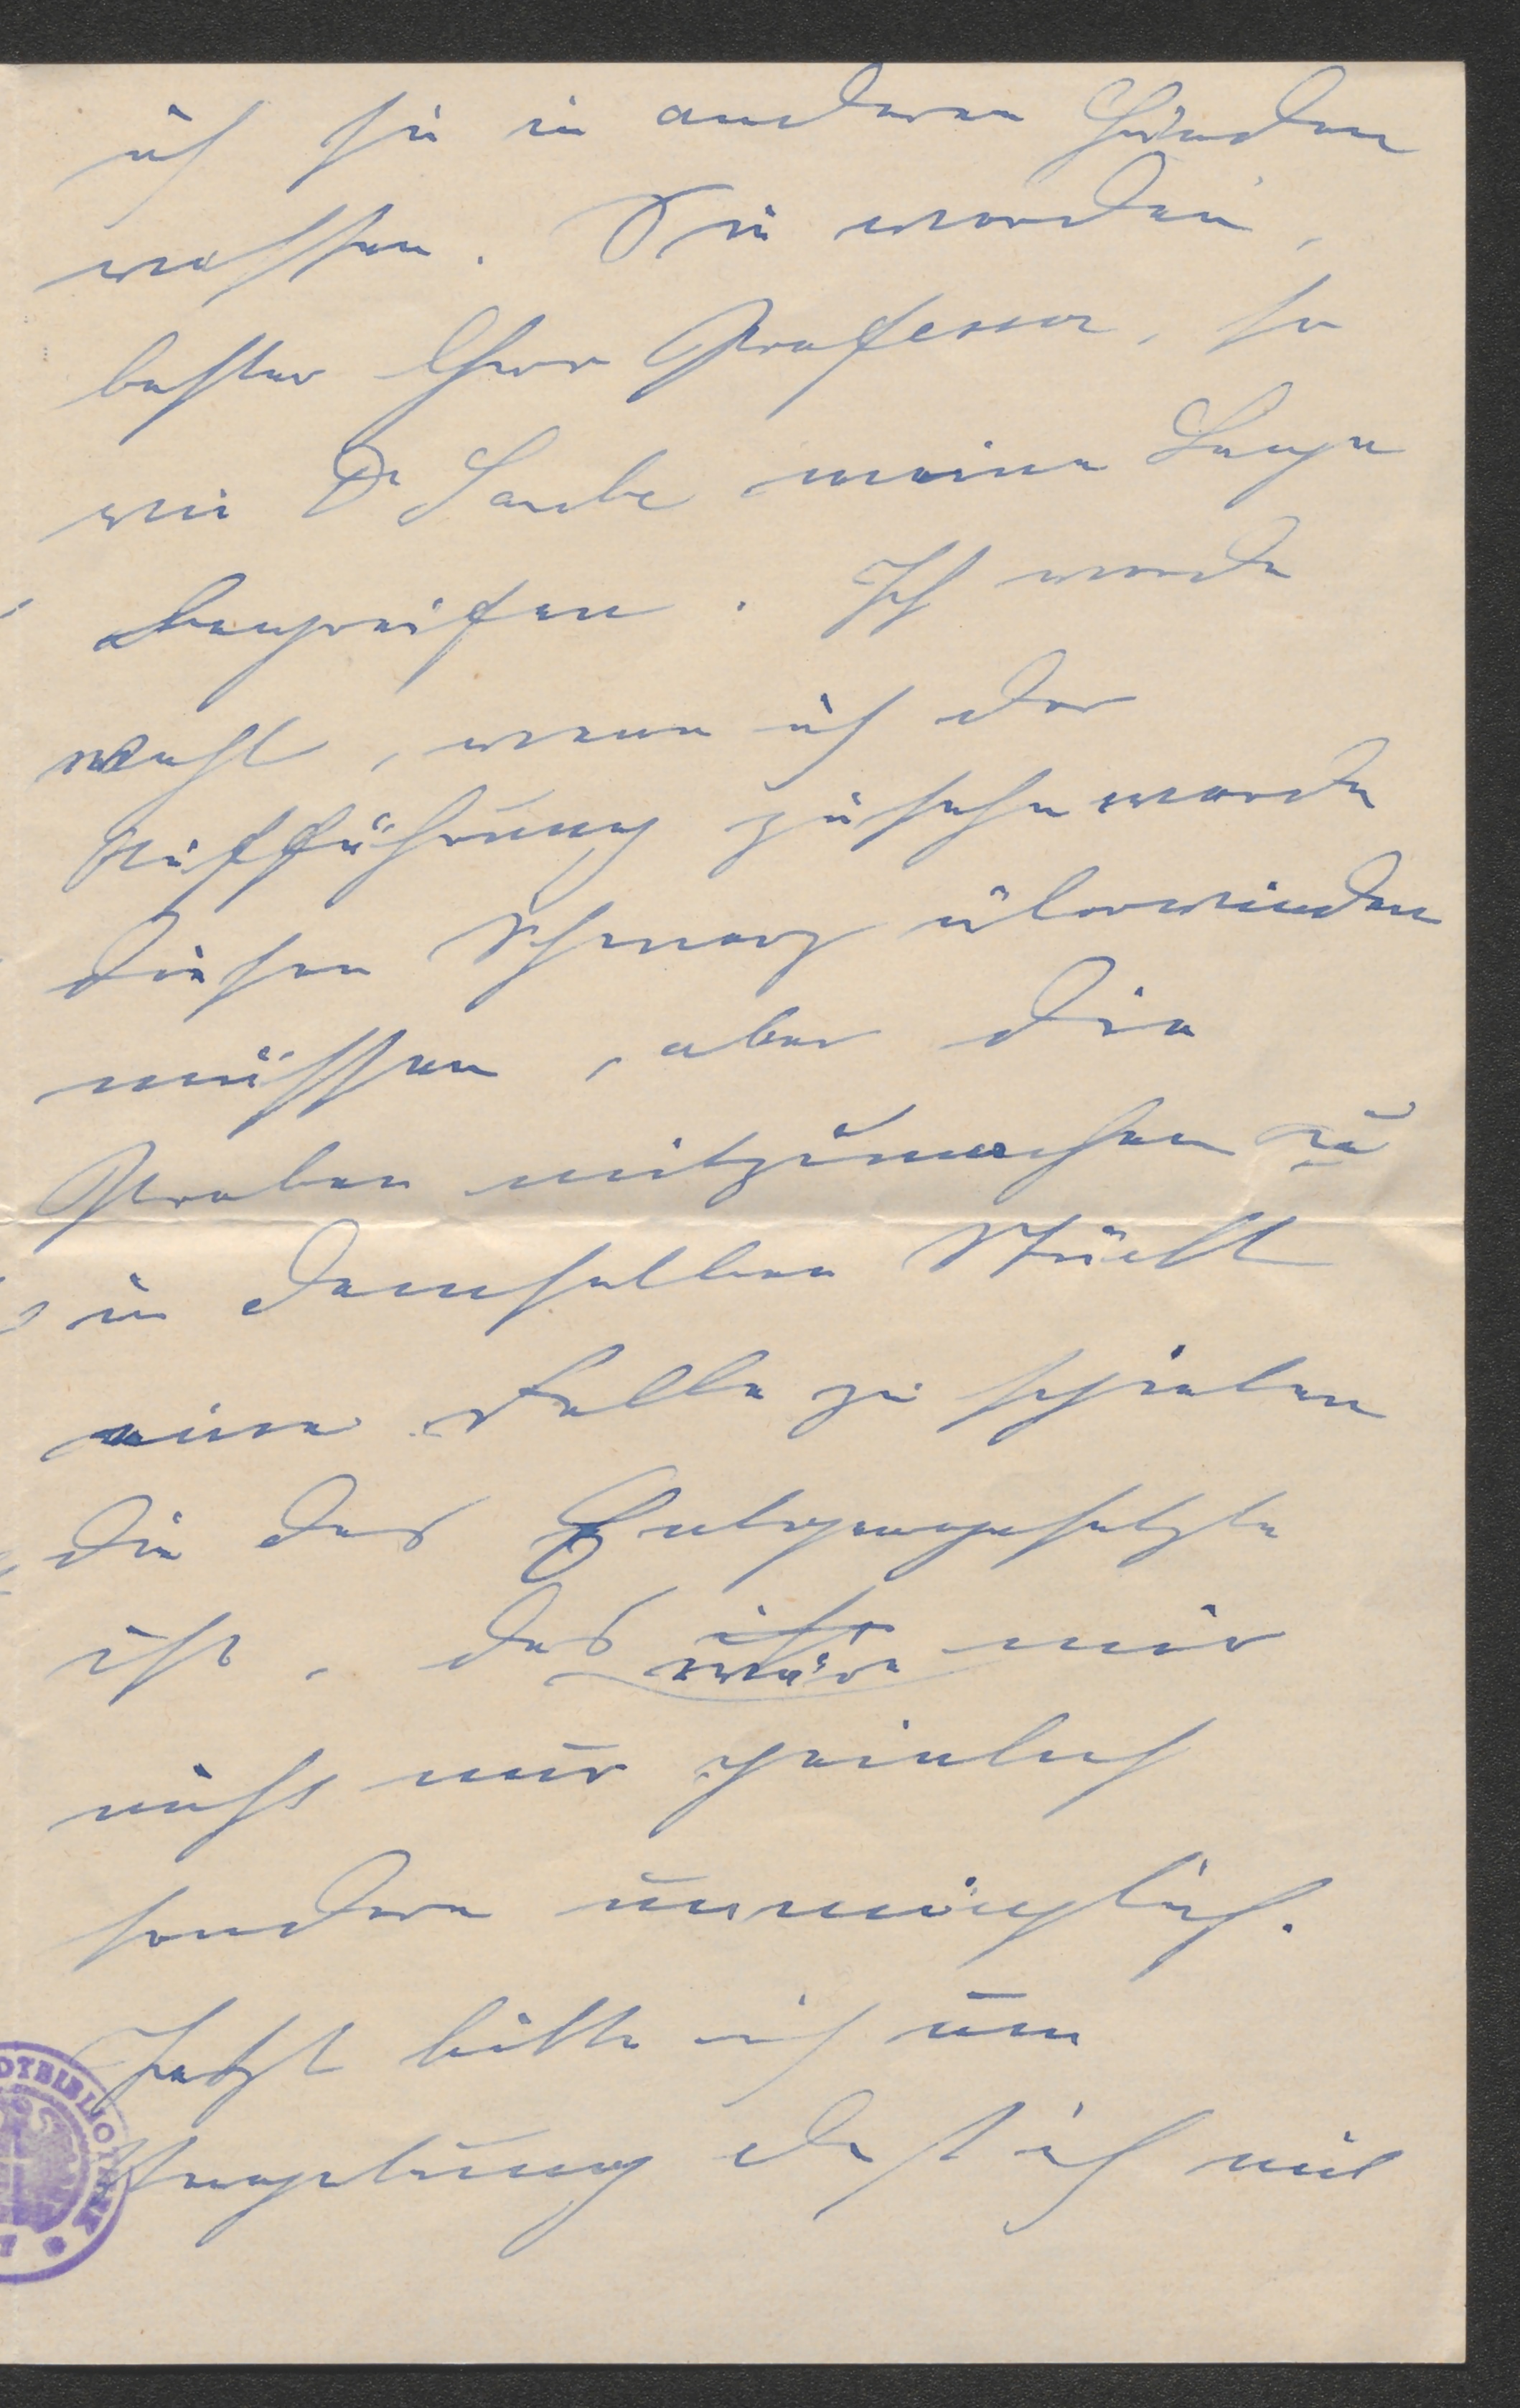 ich sie in anderen Händen
wissen. Sie werden,
bester Herr Professor, so
wie Dr Laube meine Lage
begreifen. Ich werde
wohl, wenn ich der
Aufführung zusehn werde
diesen Schmerz überwinden
müssen, aber die
Proben mitzumachen u
in demselben Stück
eine Rolle zu spielen
die das Entgegengesetzte
ist, das ist wäre mir
nicht nur peinlich
sondern unmöglich.
Jetzt bitte ich um
daß ich mit
OTBIBLIOTHEK